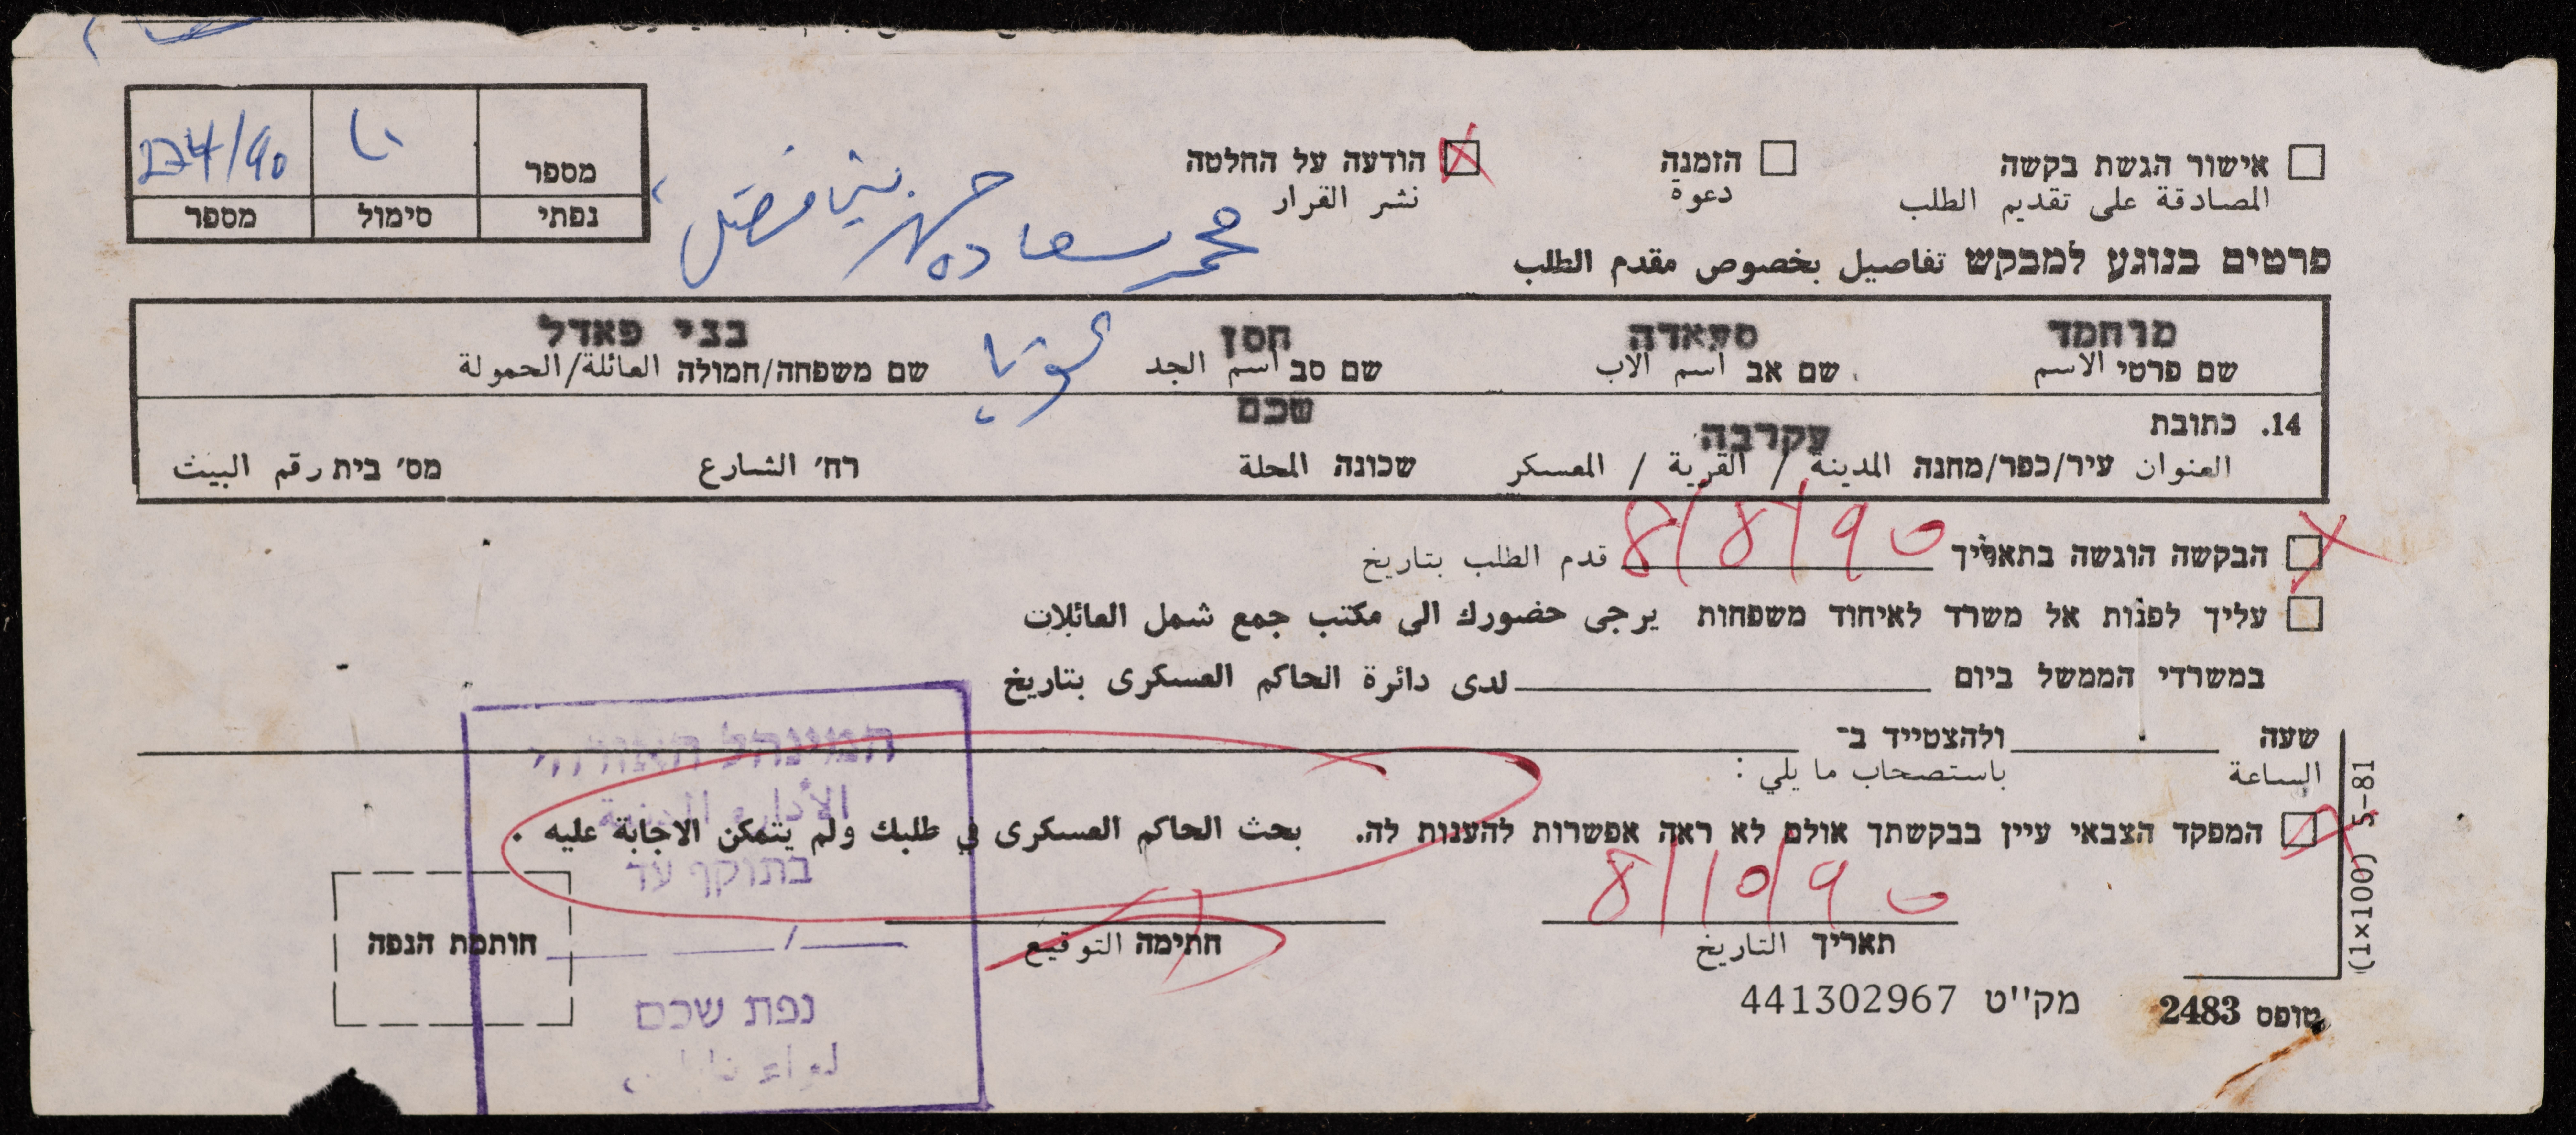 אישור הגשת בקשה הזמנה הודעה על החלטה
المصادقة على تقديم الطلب دعوة نشر القرار
מספר 224/90
נפתי סימול מספר
محمد سعاده حسن بني فضل
פרטים בנוגע למבקש تفاصيل بخصوص مقدم الطلب
מוחמד סעאדה חסן בני פאדל
שם פרטי الاسم שם אב اسم الاب שם סב اسم الجد שם משפחה/חמולה العائلة/الحمولة
14. כתובת עקרבה שכם
العنوان עיר/כפר/מחנה المدينة / القرية / المعسكر שכונה المحلة רח' الشارع מס' בית رقم البيت
הבקשה הוגשה בתאריך 8/8/90 قدم الطلب بتاريخ
עליך לפנות אל משרד לאיחוד משפחות يرجى حضورك الى مكتب جمع شمل العائلات
במשרדי הממשל ביום لدى دائرة الحاكم العسكرى بتاريخ
שעה ולהצטייד ב-
الساعة باستصحاب ما يلي :
המפקד הצבאי עיין בבקשתך אולם לא ראה אפשרות להענות לה. بحث الحاكم العسكرى في طلبك ولم يتمكن الاجابة عليه .
8/10/90
תאריך التاريخ חתימה التوقيع חותמת הנפה
טופס 2483 מק''ט 441302967
(1×100) 5-81
המינהל האזרחי
الأدارة المدنية
בתוקף עד
נפת שכם
لواء نابلس